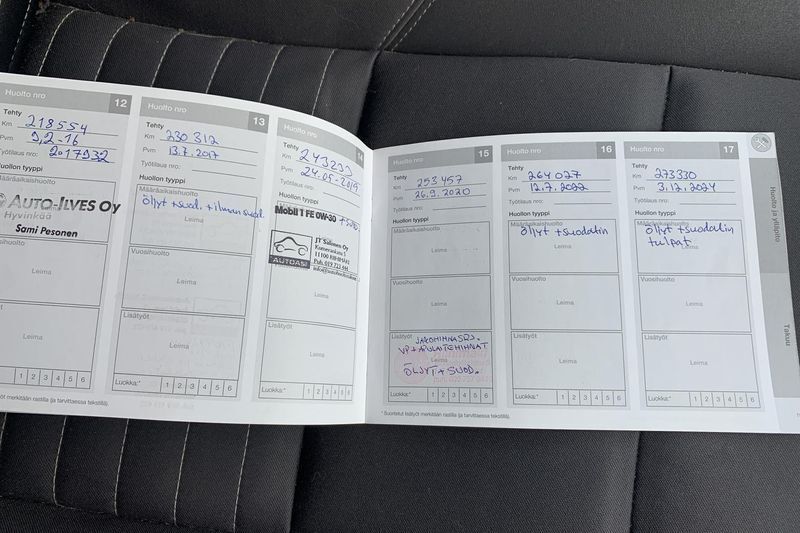 Huolto nro 12
Tehty
Km 218554
Pvm 9,2-16
Työtilaus nro: 2017932
Huollon tyyppi
Määräaikaishuolto
AUTO-ILVES OY
Hyvinkää
Sami Pesonen
Vuosihuolto
Leima
Lisätyöt
Leima
1 2 3 4 5 6
Huolto nro 13
Tehty
Km 230 312
Pvm 13.7.2017
Työtilaus nro:
Huollon tyyppi
Määräaikaishuolto
öljyt + suod. + ilman suod.
Leima
Vuosihuolto
Leima
Lisätyöt
Leima
Luokka:* 1 2 3 4 5 6
Huolto nro 14
Tehty
Km 243293
Pvm 24.05.2019
Työtilaus nro:
Huollon tyyppi
Mobil 1 FE 0W-30
AUTOASI
JT Salinen Oy
11100 RIIHIMÄKI
Vuosihuolto
Leima
Lisätyöt
Leima
Luokka:* 1 2 3 4 5 6
Huolto nro 15
Tehty
Km 253 457
Pvm 26.9.2020
Työtilaus nro:
Huollon tyyppi
Määräaikaishuolto
Leima
Vuosihuolto
Leima
Lisätyöt
JAKOHIHNASRJ.
VP + APULAITEHIHNAT
Leima
ÖLJYT + SUOD.
Luokka:* 1 2 3 4 5 6
Huolto nro 16
Tehty
Km 264 027
Pvm 12.7.2022
Työtilaus nro:
Huollon tyyppi
Määräaikaishuolto
öljyt + suodatin
Leima
Vuosihuolto
Leima
Lisätyöt
Leima
Luokka:* 1 2 3 4 5 6
Huolto nro 17
Tehty
Km 273330
Pvm 3.12.2024
Työtilaus nro:
Huollon tyyppi
Määräaikaishuolto
öljyt + suodatin
tulpat
Leima
Vuosihuolto
Leima
Lisätyöt
Leima
Luokka:* 1 2 3 4 5 6
Huolto ja ylläpito
Takuu
merkitään rastilla (ja tarvittaessa tekstillä).
* Suoritetut lisätyöt merkitään rastilla (ja tarvittaessa tekstillä).